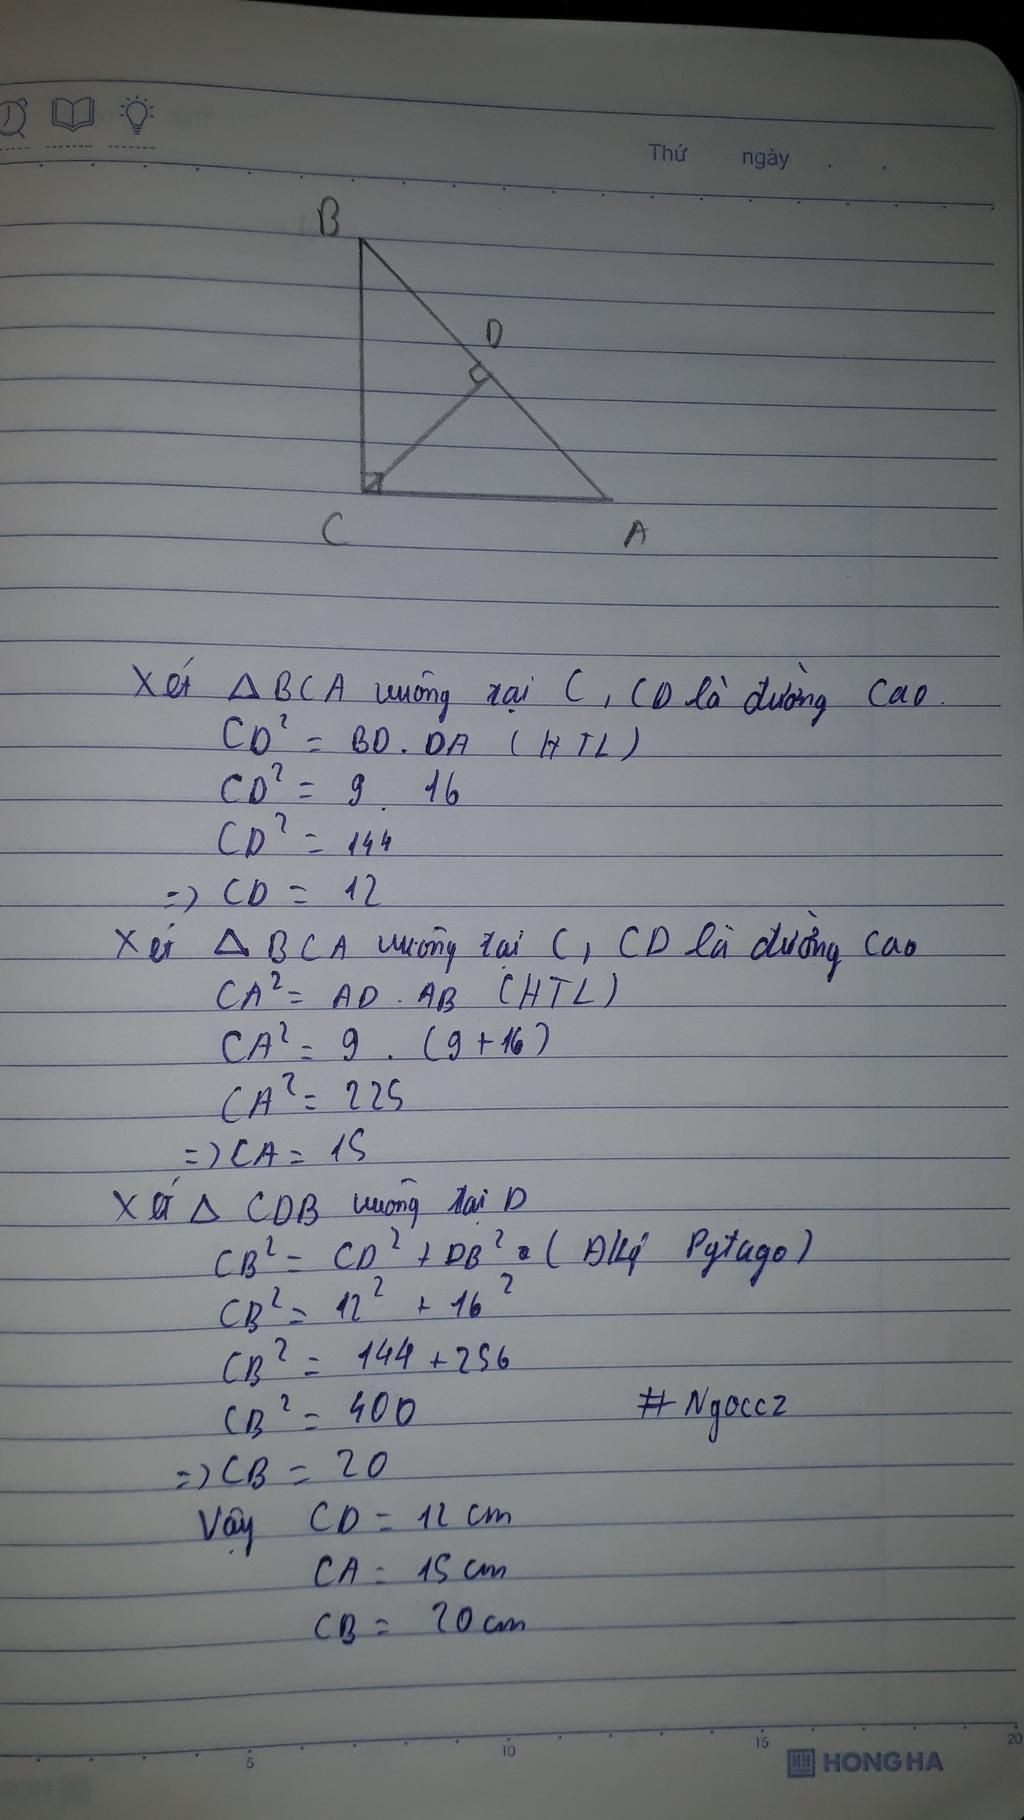 Thứ ngày . .
B
D
C A
Xét Δ BCA vuông tại C, CD là đường cao.
CD² = BD . DA (HTL)
CD² = 9 . 16
CD² = 144
=> CD = 12
Xét Δ BCA vuông tại C, CD là đường cao
CA² = AD . AB (HTL)
CA² = 9 . (9+16)
CA² = 225
=> CA = 15
Xét Δ CDB vuông tại D
CB² = CD² + DB² (Đlý Pytago)
CB² = 12² + 16²
CB² = 144 + 256
CB² = 400 # Ngoccz
=> CB = 20
Vậy CD = 12 cm
CA = 15 cm
CB = 20 cm
5 10 15 20
HONG HA